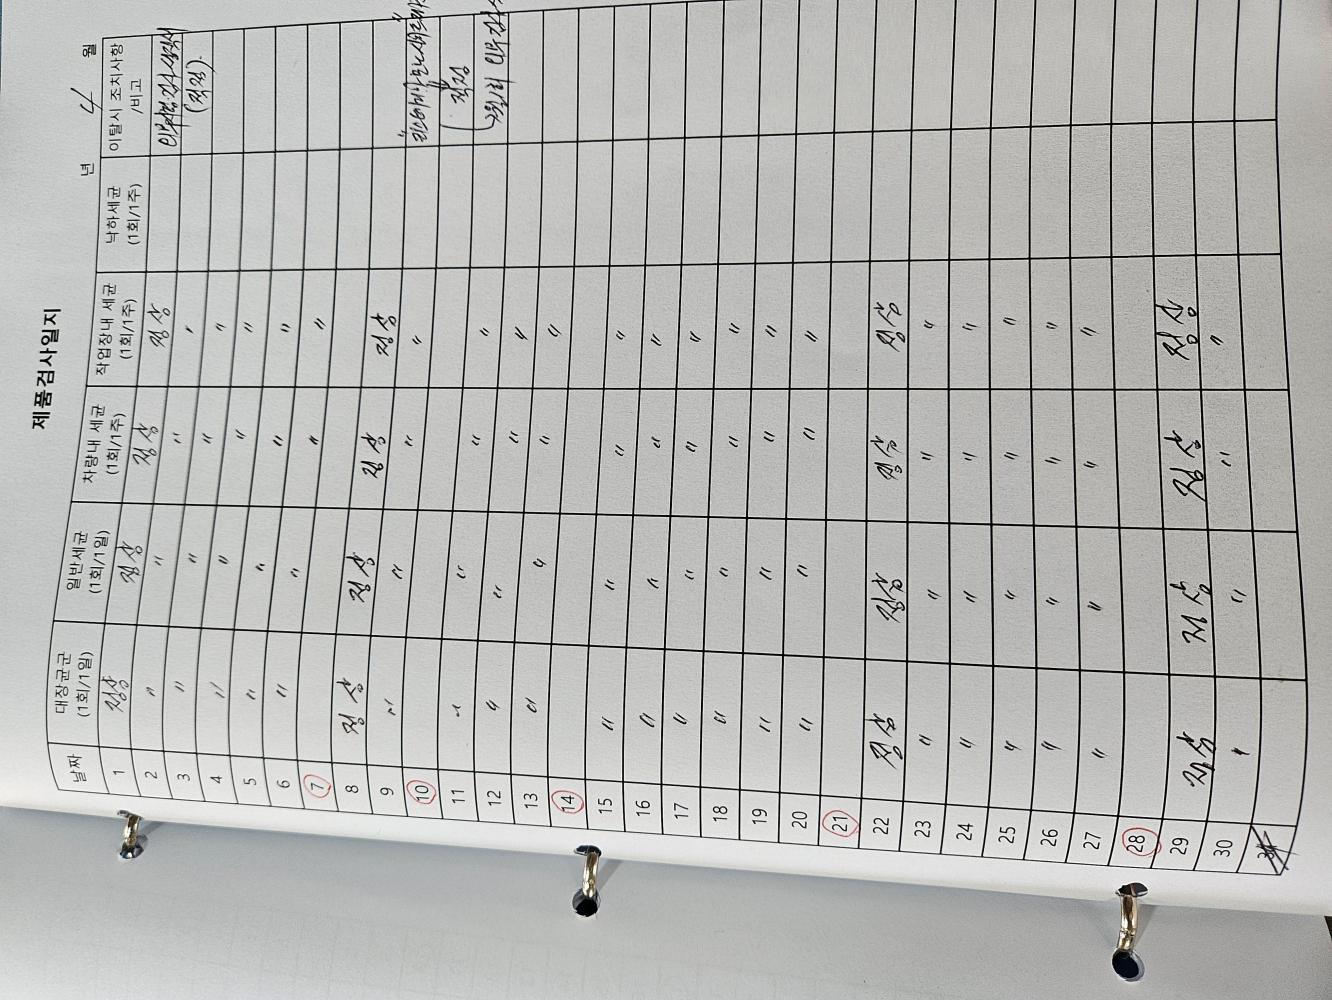 제품검사일지
년 4 월
날짜 대장균군 (1회/1일) 일반세균 (1회/1일) 차량내 세균 (1회/1주) 작업장내 세균 (1회/1주) 낙하세균 (1회/1주) 이탈시 조치사항 /비고
1 정상 정상 정상 정상
2 〃 〃 〃 〃 (적정).
3 〃 〃 〃 〃
4 〃 〃 〃 〃
5 〃 〃 〃 〃
6 〃 〃 〃 〃
7
8 정상 정상 정상 정상
9 〃 〃 〃 〃
10 적정
11 〃 〃 〃 〃
12 〃 〃 〃 〃
13 〃 〃 〃 〃
14
15 〃 〃 〃 〃
16 〃 〃 〃 〃
17 〃 〃 〃 〃
18 〃 〃 〃 〃
19 〃 〃 〃 〃
20 〃 〃 〃 〃
21
22 정상 정상 정상 정상
23 〃 〃 〃 〃
24 〃 〃 〃 〃
25 〃 〃 〃 〃
26 〃 〃 〃 〃
27 〃 〃 〃 〃
28
29 정상 정상 정상 정상
30 〃 〃 〃 〃
31